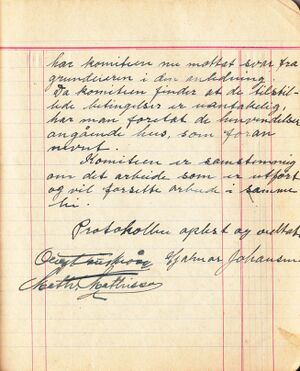 har komiteen nu mottat svar fra
grundeieren i den anledning.
Da komiteen finder at de tilstil-
lede betingelser er uantakelig,
har man foretat de henvendelser
angående hus, som foran
nevnt.
Komiteen er samstemmig
om det arbeide som er utført
og vil forsette arbeide i samme
Protokollen oplest og vedtat
Hjalmar Johansen
Mathis Mathissen